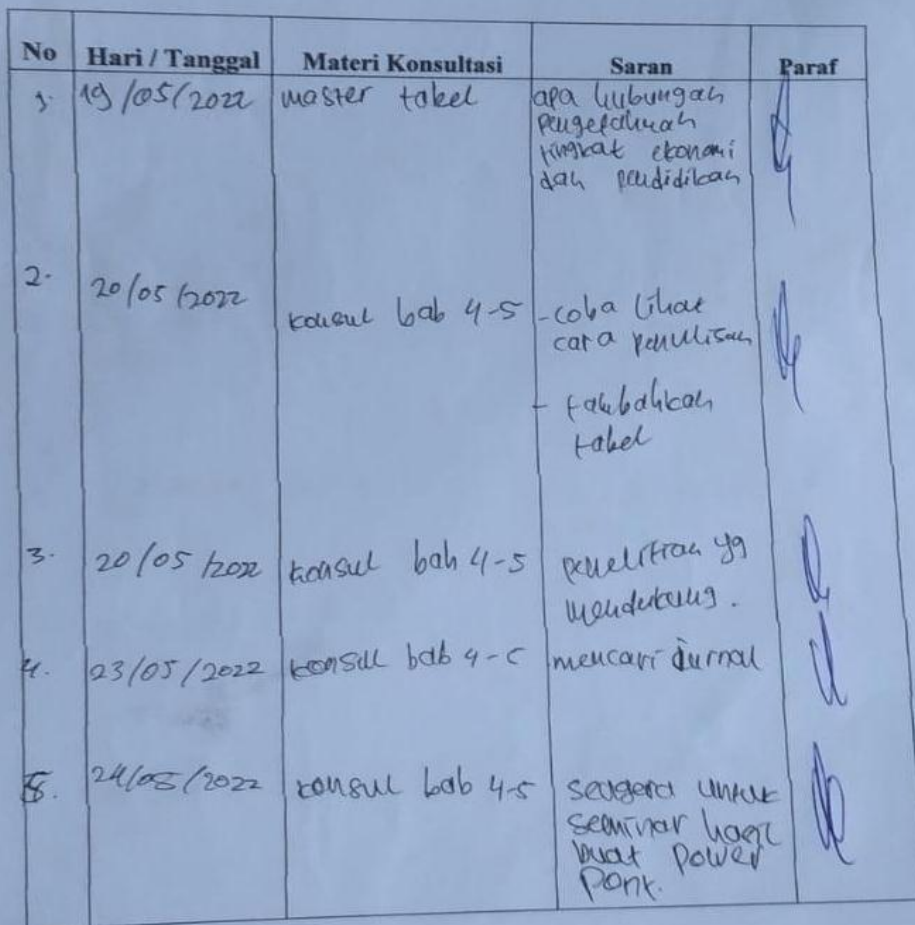 No Hari / Tanggal Materi Konsultasi Saran Paraf
1. 19/05/2022 master tabel apa hubungan
pengetahuan
tingkat ekonomi
dan pendidikan
2. 20/05/2022
konsul bab 4-5 - coba lihat
cara penulisan
- tambahkan
tabel
3. 20/05/2022 konsul bab 4-5 penelitian yg
mendukung.
4. 23/05/2022 konsul bab 4-5 mencari jurnal
5. 24/05/2022 konsul bab 4-5 seugera untuk
seminar hasil
buat power
Ponk.